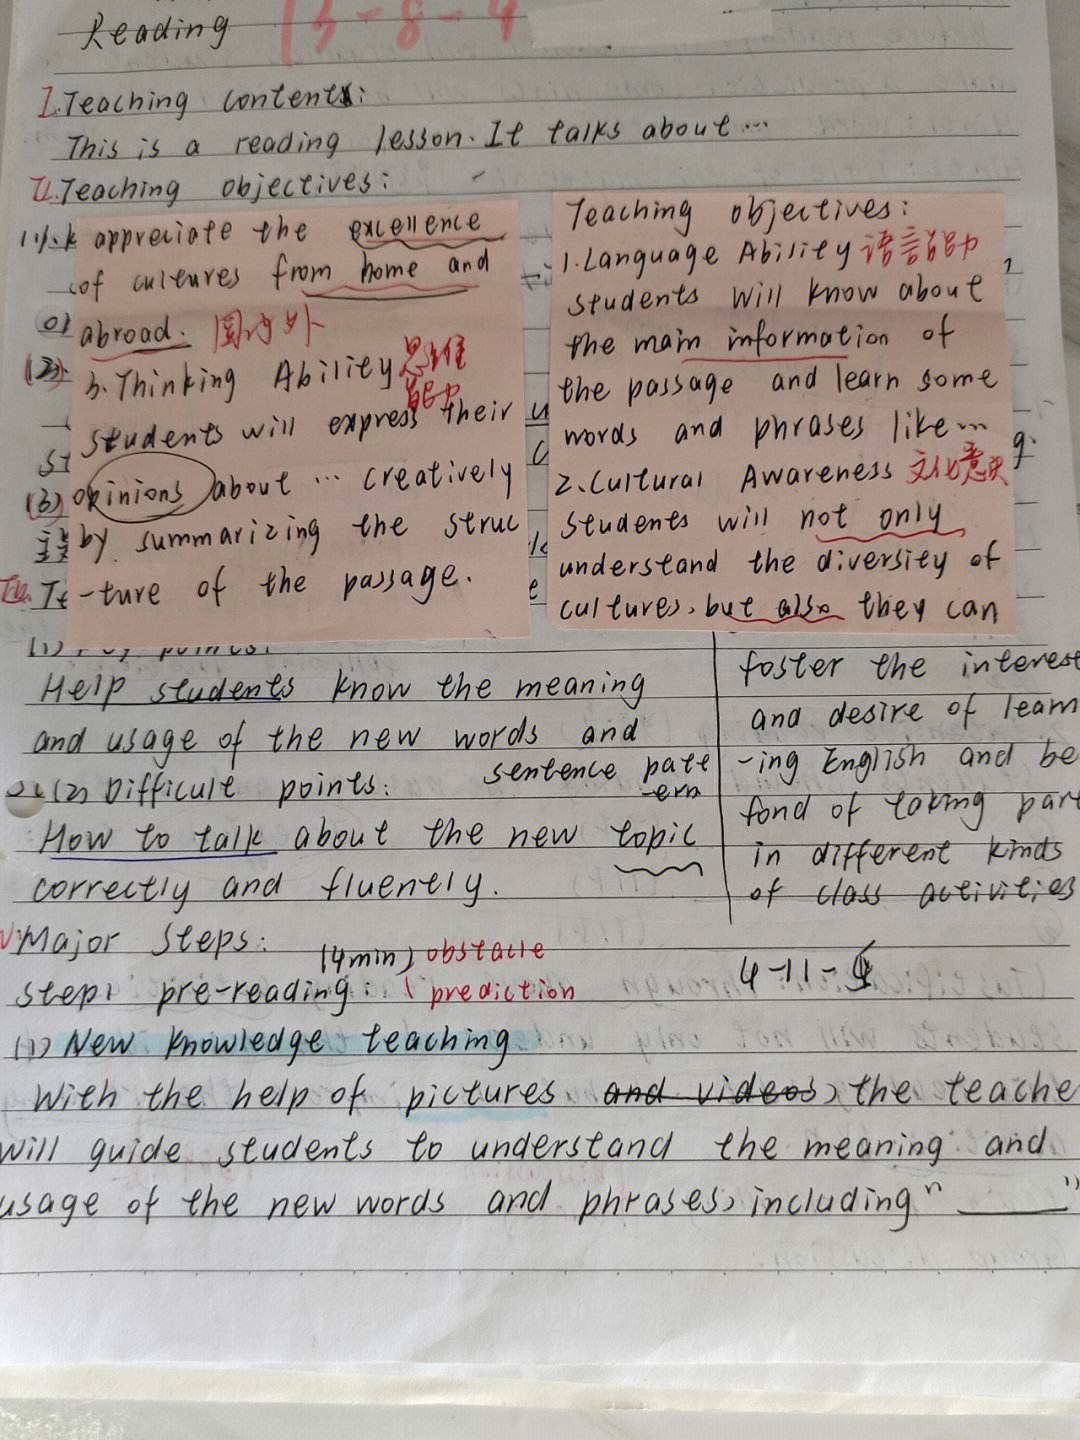 Reading 13-8-4
I.Teaching contents:
This is a reading lesson. It talks about...
II.Teaching objectives:
Teaching objectives:
1.Language Ability 语言能力
students will know about
the main information of
the passage and learn some
words and phrases like...
2.Cultural Awareness 文化意识
Students will not only
understand the diversity of
cultures, but also they can
appreciate the excellence
of cultures from home and
abroad. 国内外
3.Thinking Ability 思维
能力
Students will express their
opinions about ... creatively
by summarizing the struc
-ture of the passage.
Help students know the meaning
and usage of the new words and
sentence patt
-ern
(2) Difficult points:
How to talk about the new topic
correctly and fluently.
foster the interest
and desire of learn
-ing English and be
fond of taking part
in different kinds
of class activities
Major Steps:
step1 pre-reading: (4min) obstacle
prediction
4-11-4
(1) New knowledge teaching
With the help of pictures and videos, the teache
will guide students to understand the meaning and
usage of the new words and phrases, including "____"